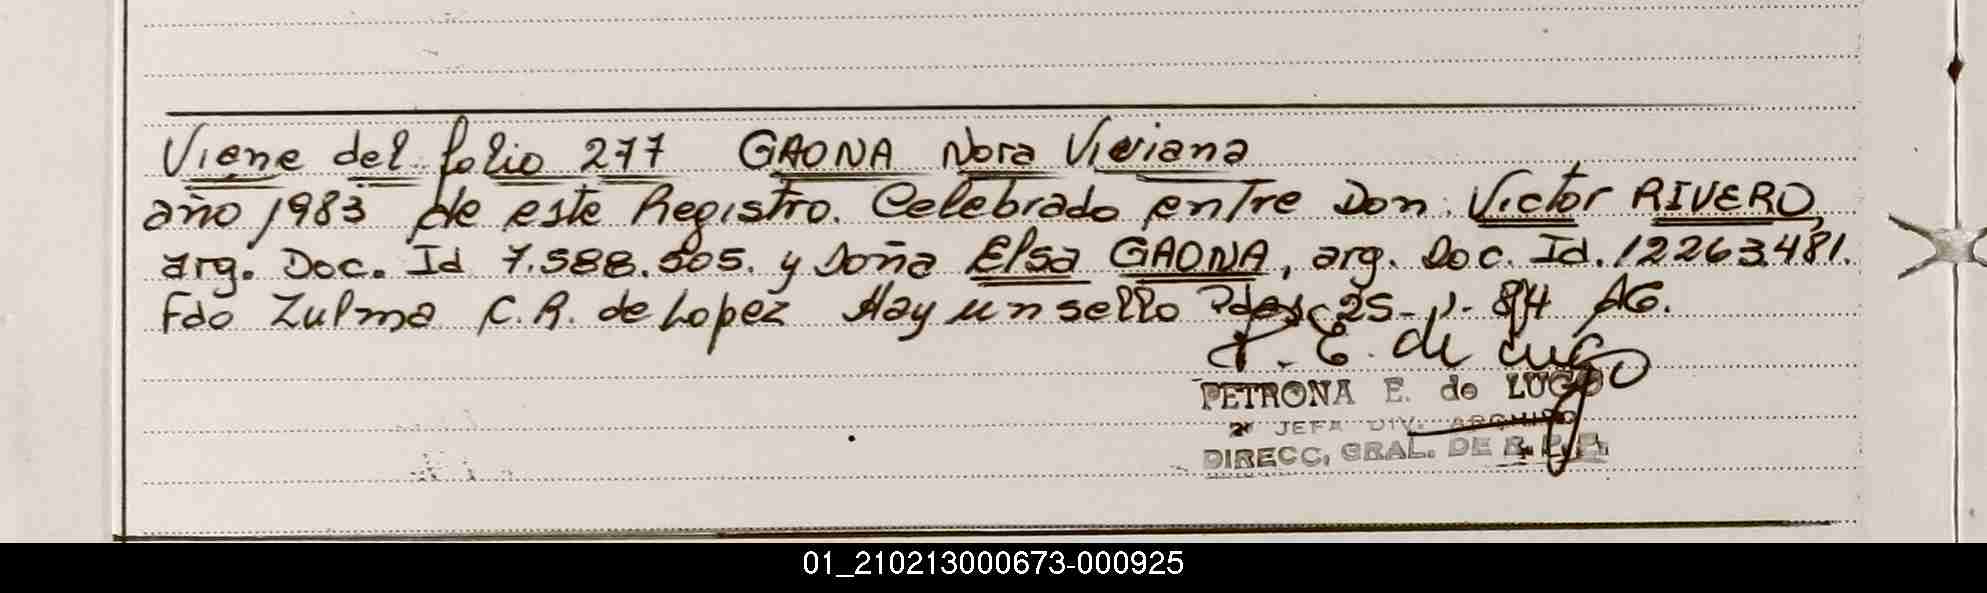 Viene del folio 277 GAONA Nora Viviana
año 1983 de este Registro. Celebrado entre Don. Victor RIVERO,
arg. Doc. Id 7.588.505. y Doña Elsa GAONA, arg. Doc. Id. 12263481.
Fdo Zulma C. R. de Lopez Hay un sello 25-1-84 AG.
P. E. de Lugo
PETRONA E. de LUGO
2ª JEFA DIV. ARCHIVO
DIRECC, GRAL. DE R. P. P.
01_210213000673-000925